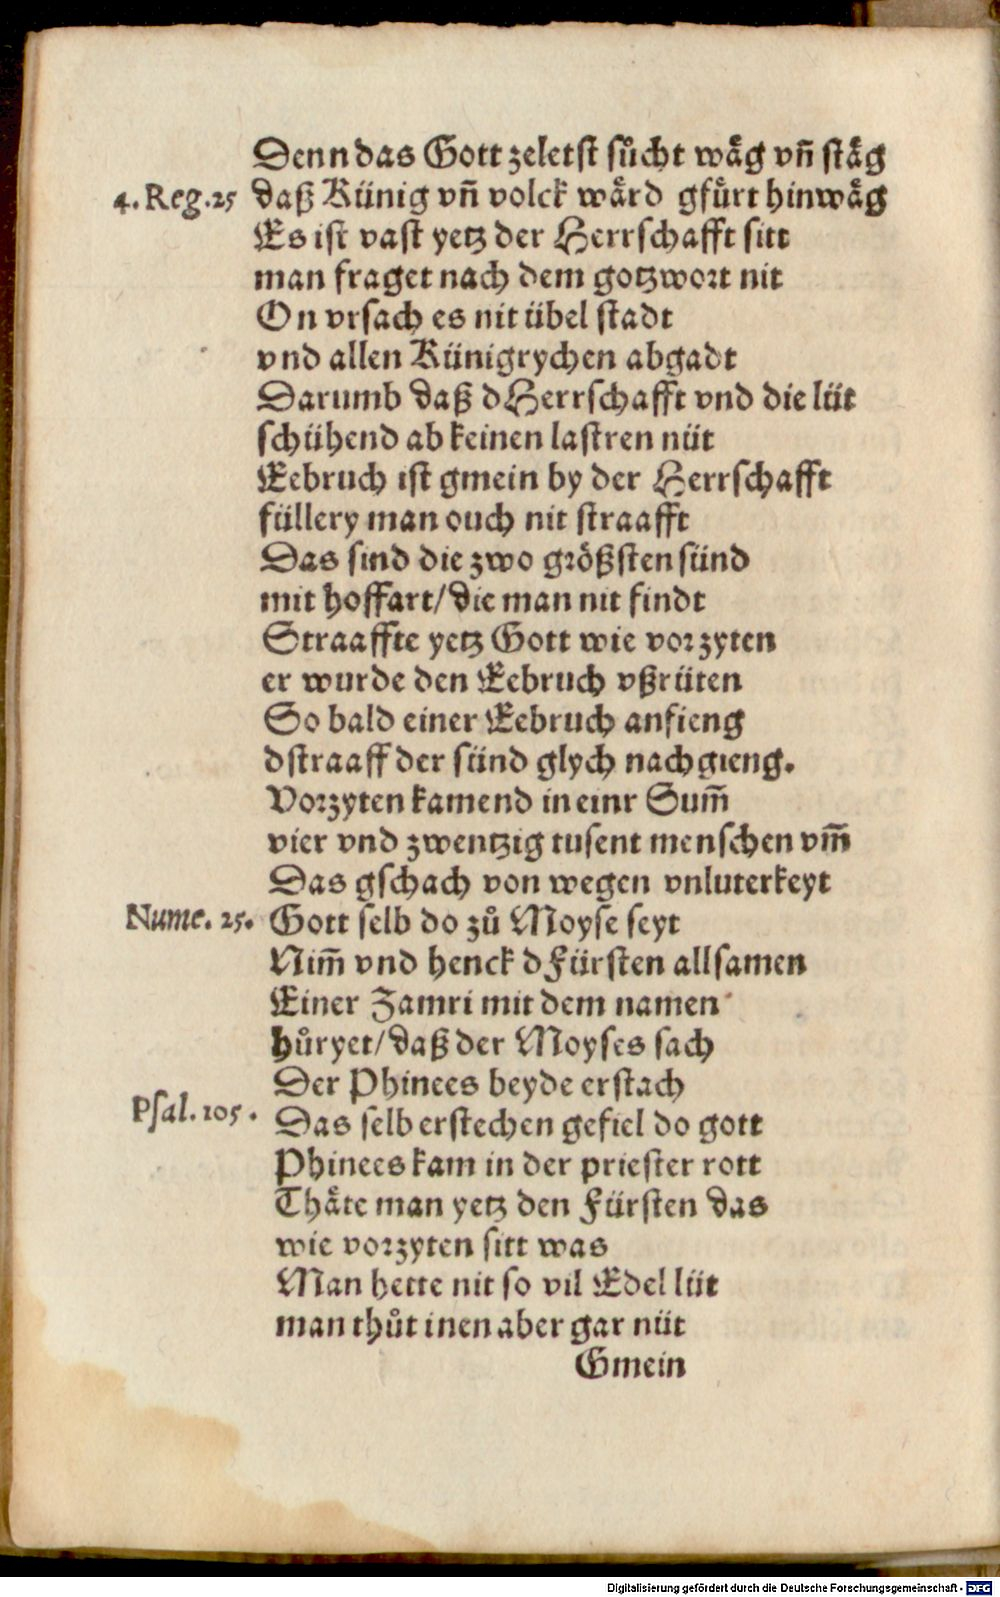 Denn das Gott zeletst suͦcht waͤg vñ staͤg
4. Reg. 25 daß Künig vñ volck waͤrd gfuͤrt hinwaͤg
Es ist vast yetz der Herrschafft sitt
man fraget nach dem gotzwort nit
On vrsach es nit übel stadt
vnd allen Künigrychen abgadt
Darumb daß dHerrschafft vnd die lüt
schühend ab keinen lastren nüt
Eebruch ist gmein by der Herrschafft
füllery man ouch nit straafft
Das sind die zwo größsten sünd
mit hoffart/ die man nit findt
Straaffte yetz Gott wie vorzyten
er wurde den Eebruch vßrüten
So bald einer Eebruch anfieng
dstraaff der sünd glych nachgieng.
Vorzyten kamend in einr Sum̃
vier vnd zwentzig tusent menschen vm̃
Das gschach von wegen vnluterkeyt
Nume. 25. Gott selb do zuͦ Moyse seyt
Nim̃ vnd henck dFürsten allsamen
Einer Zamri mit dem namen
huͦryet/ daß der Moyses sach
Der Phinees beyde erstach
Psal. 105. Das selb erstechen gefiel do gott
Phinees kam in der priester rott
Thaͤte man yetz den Fürsten das
wie vorzyten sitt was
Man hette nit so vil Edel lüt
man thuͦt inen aber gar nüt
Gmein
Digitalisierung gefördert durch die Deutsche Forschungsgemeinschaft - DFG